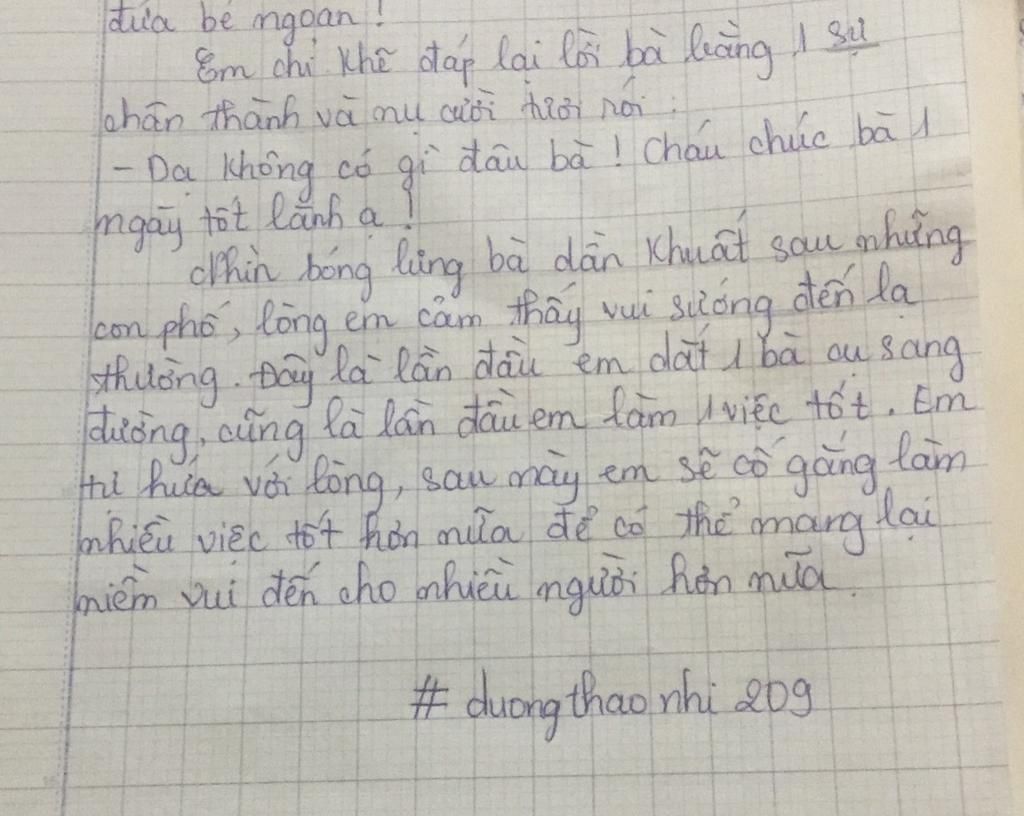 đứa bé ngoan !
Em chỉ khẽ đáp lại lời bà bằng 1 sự
chân thành và nụ cười tươi rói :
- Dạ không có gì đâu bà ! Cháu chúc bà 1
ngày tốt lành ạ !
Nhìn bóng lưng bà dần khuất sau những
con phố, lòng em cảm thấy vui sướng đến lạ
thường. Đây là lần đầu em dắt 1 bà cụ sang
đường, cũng là lần đầu em làm 1 việc tốt. Em
tự hứa với lòng, sau này em sẽ cố gắng làm
nhiều việc tốt hơn nữa để có thể mang lại
niềm vui đến cho nhiều người hơn nữa.
# duongthaonhi 209